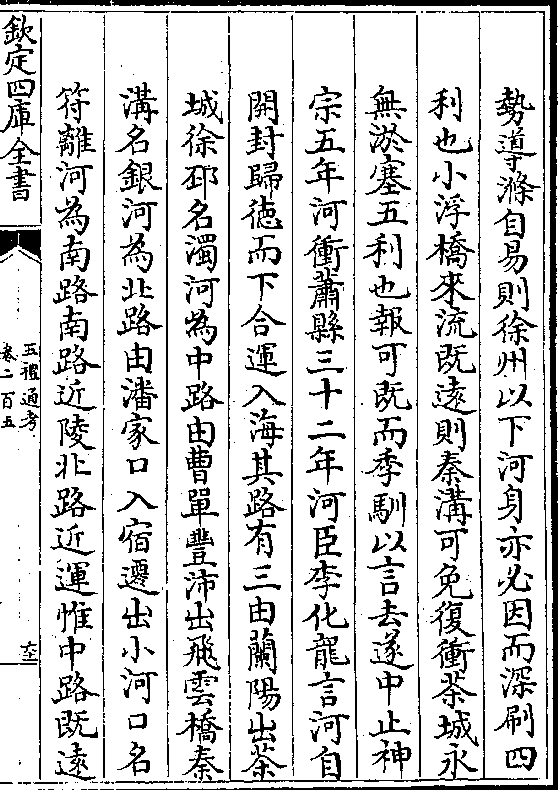 勢導滌自易則徐州以下河身亦必因而深刷四
利也小浮橋來流既遠則秦溝可免復衝茶城永
無淤塞五利也報可既而季馴以言去遂中止神
宗五年河衝蕭縣三十二年河臣李化龍言河自
開封歸徳而下合運入海其路有三由蘭陽出茶
城徐邳名濁河為中路由曹單豐沛出飛雲橋秦
溝名銀河為北路由潘家口入宿遷出小河口名
符離河為南路南路近陵北路近運惟中路既遠
欽定四庫全書
五禮通考
卷二百五